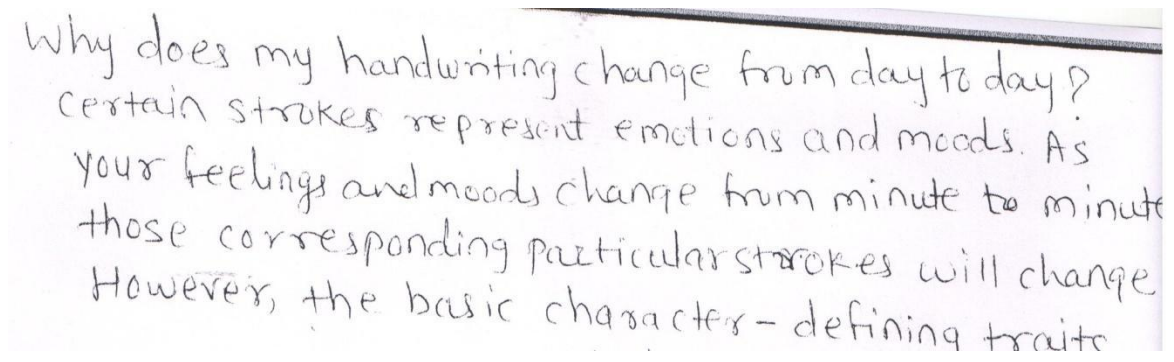 Why does my handwriting change from day to day?
Certain strokes represent emotions and moods. As
your feelings and moods change from minute to minute
those corresponding particular strokes will change
However, the basic character-defining traits